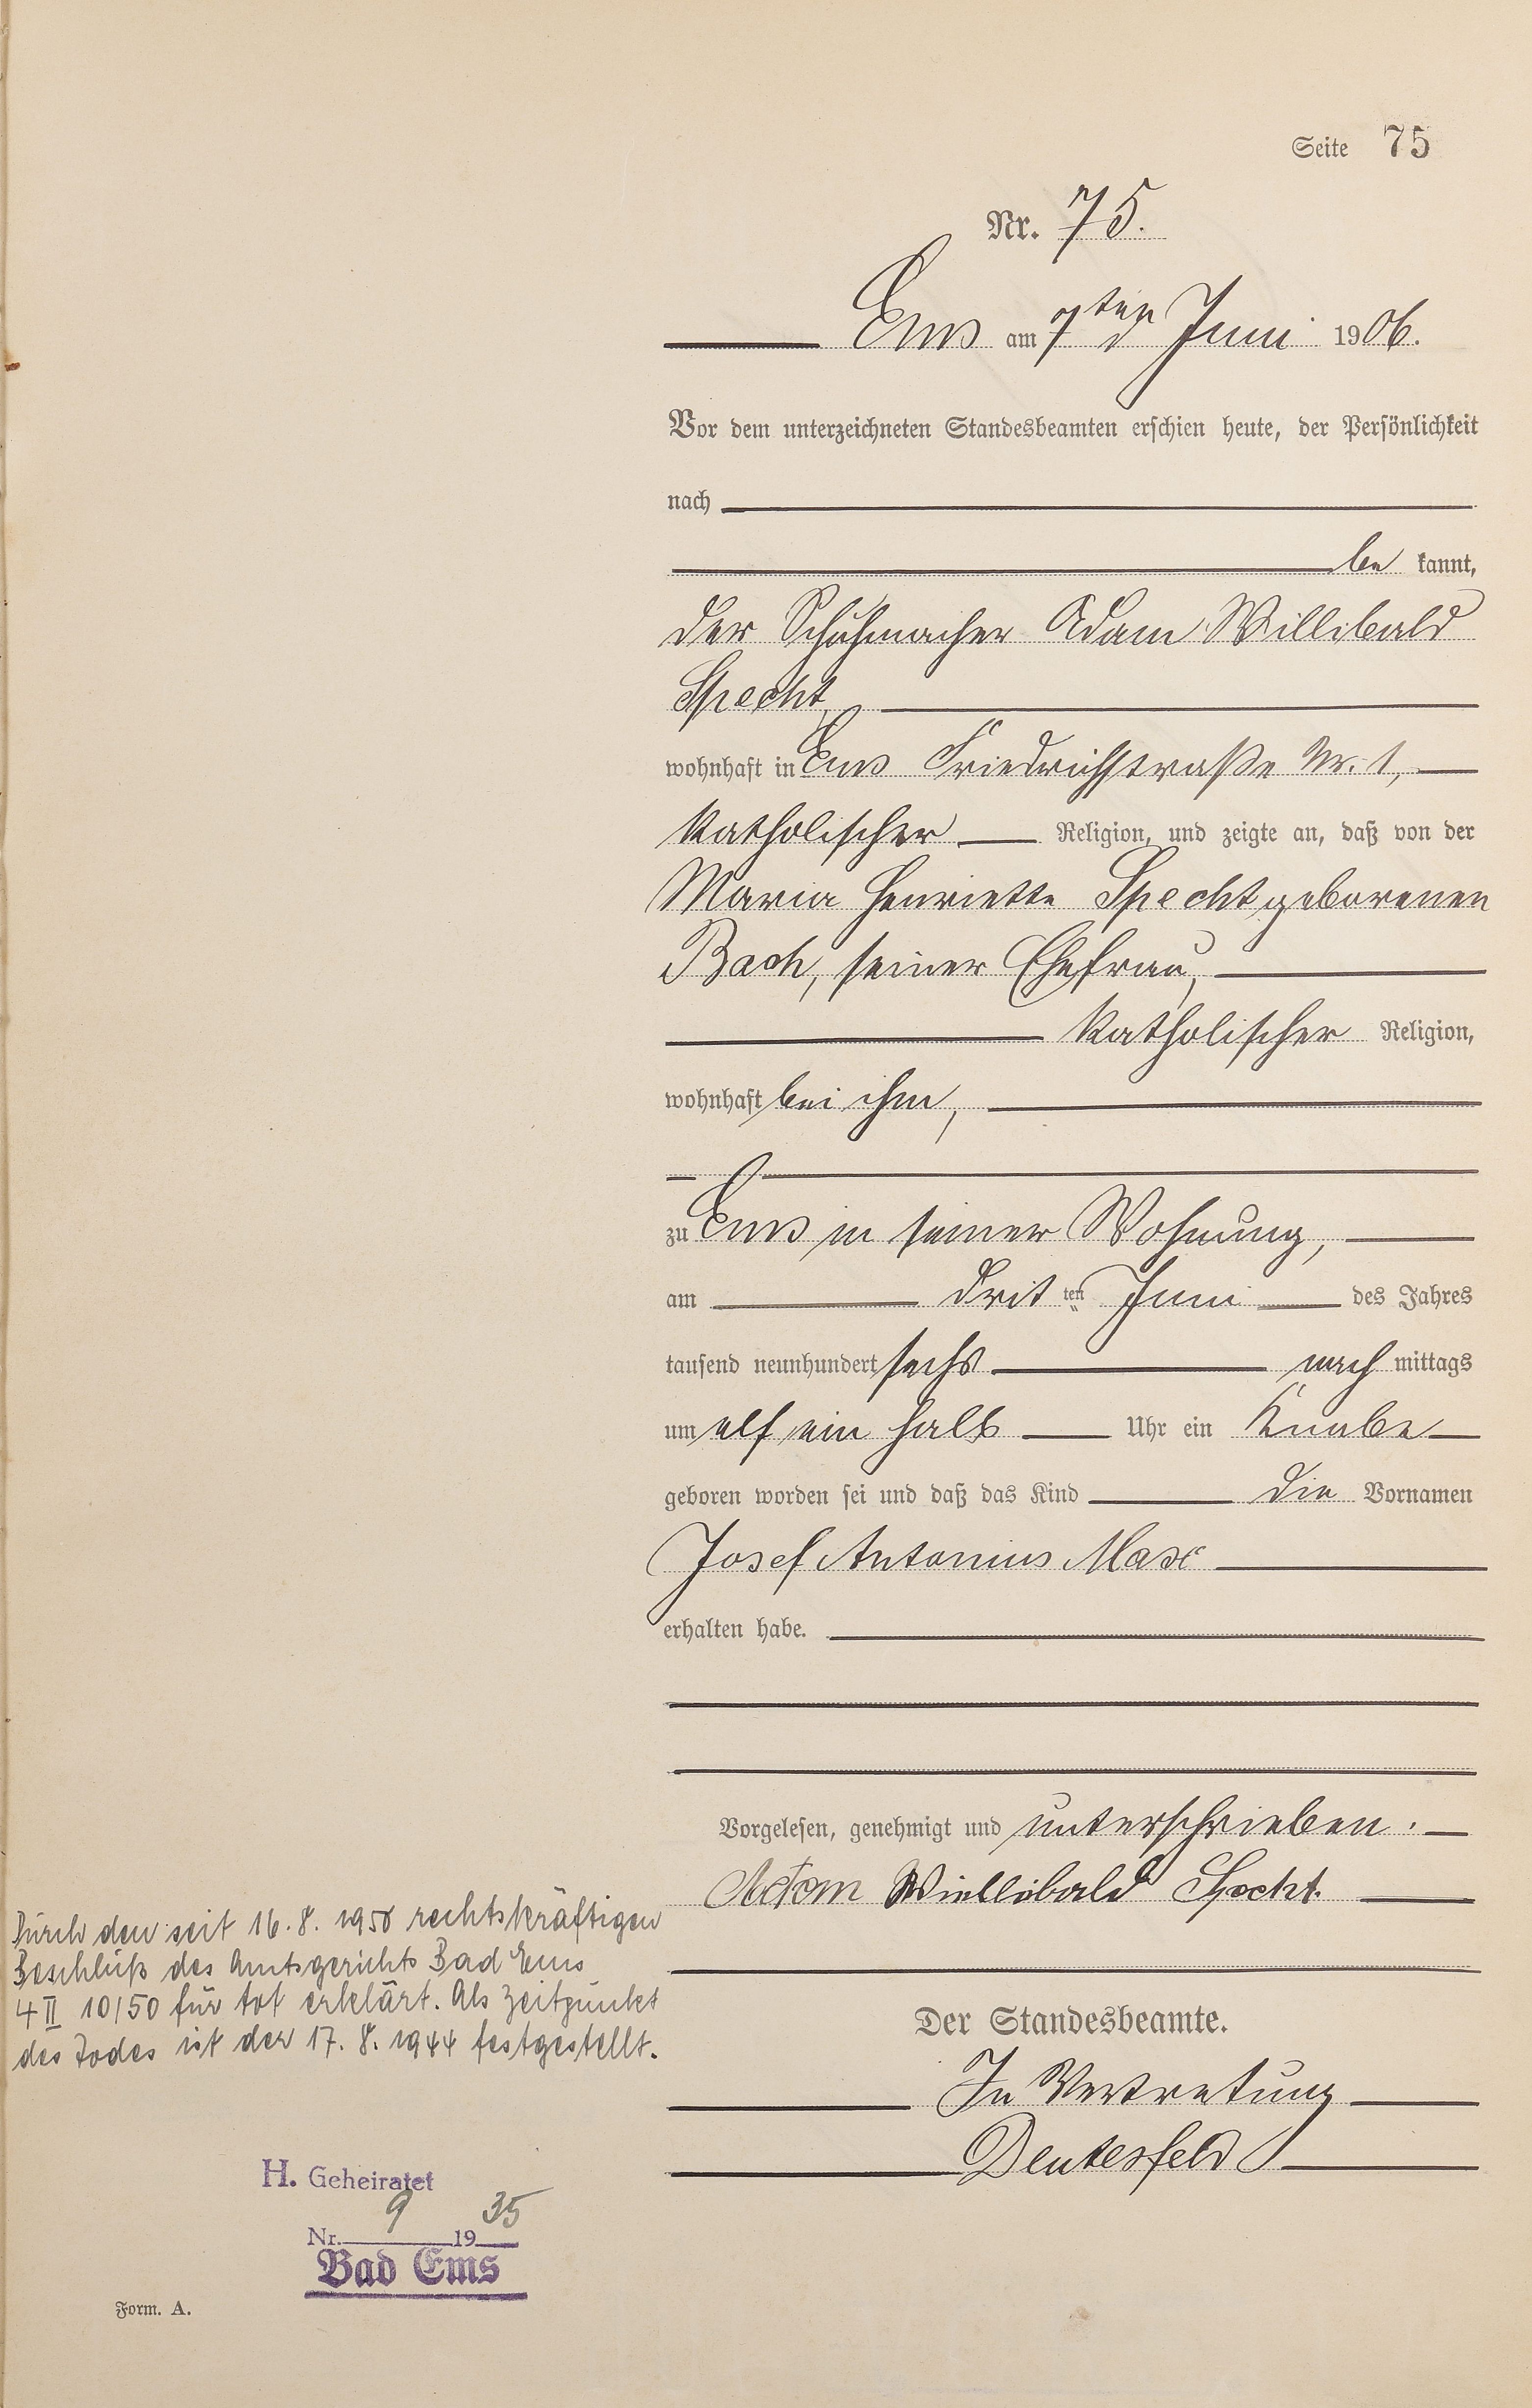 Seite 75
Nr. 75.
Ems am 7ten Juni 1906.
Vor dem unterzeichneten Standesbeamten erschien heute, der Persönlichkeit
nach
be kannt,
der Schuhmacher Adam Willibald
Specht,
wohnhaft in Ems Friedrichstraße Nr. 1,
katholischer Religion, und zeigte an, daß von der
Maria Henriette Specht geborenen
Bach, seiner Ehefrau,
katholischer Religion,
wohnhaft bei ihm,
zu Ems in seiner Wohnung,
am drit ten Juni des Jahres
tausend neunhundert sechs nach mittags
um elf ein halb Uhr ein Knabe
geboren worden sei und daß das Kind die Vornamen
Josef Antonius Max
erhalten habe.
Vorgelesen, genehmigt und unterschrieben.
Adam Wiellibald Specht.
Der Standesbeamte.
In Vertretung
Deutesfeld
Durch den seit 16. 8. 1950 rechtskräftigen
Beschluß des Amtsgerichts Bad Ems
4 II 10/50 für tot erklärt. Als Zeitpunkt
des Todes ist der 17. 8. 1944 festgestellt.
H. Geheiratet
Nr. 9 19 35
Bad Ems
Form. A.